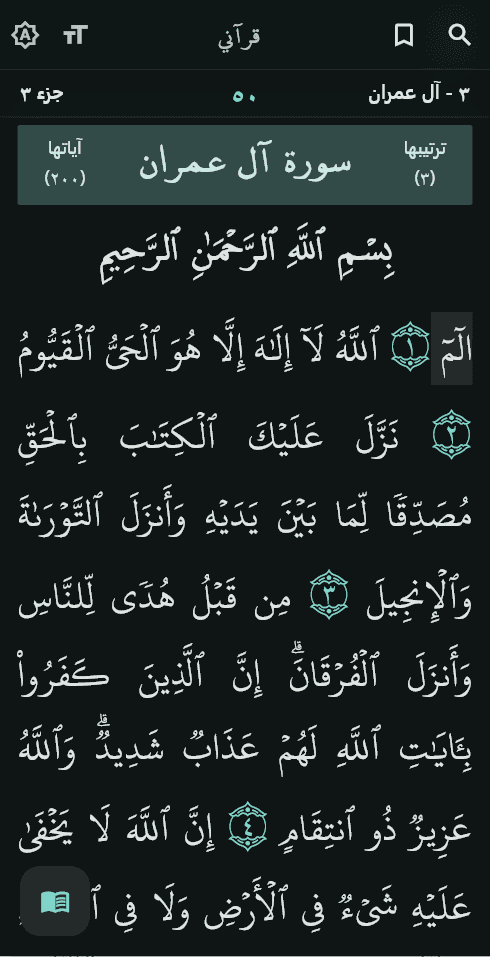 قرآني
٣ - آل عمران ٥٠ جزء ٣
ترتيبها سورة آل عمران آياتها
(٣) (٢٠٠)
بِسْمِ ٱللَّهِ ٱلرَّحْمَٰنِ ٱلرَّحِيمِ
الٓمٓ ١ ٱللَّهُ لَآ إِلَٰهَ إِلَّا هُوَ ٱلْحَىُّ ٱلْقَيُّومُ
٢ نَزَّلَ عَلَيْكَ ٱلْكِتَٰبَ بِٱلْحَقِّ
مُصَدِّقًا لِّمَا بَيْنَ يَدَيْهِ وَأَنزَلَ ٱلتَّوْرَىٰةَ
وَٱلْإِنجِيلَ ٣ مِن قَبْلُ هُدًى لِّلنَّاسِ
وَأَنزَلَ ٱلْفُرْقَانَ ۗ إِنَّ ٱلَّذِينَ كَفَرُوا۟
بِـَٔايَٰتِ ٱللَّهِ لَهُمْ عَذَابٌ شَدِيدٌ ۗ وَٱللَّهُ
عَزِيزٌ ذُو ٱنتِقَامٍ ٤ إِنَّ ٱللَّهَ لَا يَخْفَىٰ
عَلَيْهِ شَىْءٌ فِى ٱلْأَرْضِ وَلَا فِى